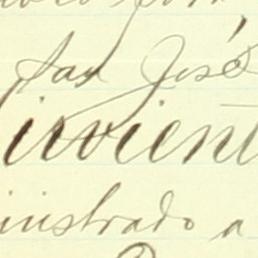 San José
irvient
inistrado a